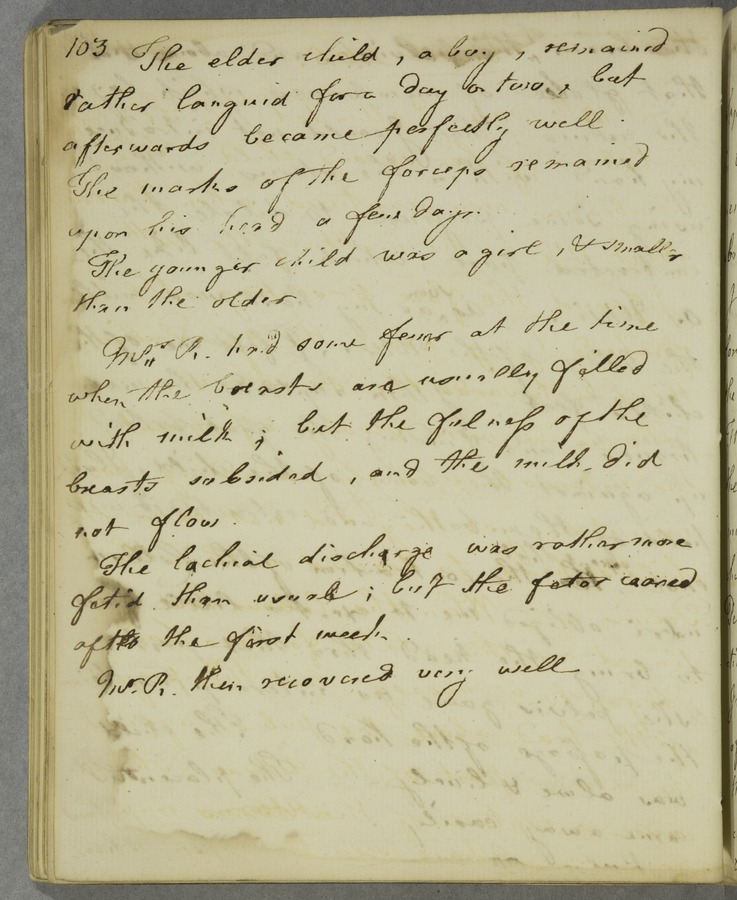 103 The elder child, a boy, remained
rather languid for a day or two, but
afterwards became perfectly well.
The marks of the forceps remained
upon his head a few days.
The younger child was a girl, & smaller
than the older
Mrs. R. had some fever at the time
when the breasts are usually filled
with milk; but the fulness of the
breasts subsided, and the milk did
not flow.
The lochial discharge was rather more
fetid than usual; but the fetor ceased
after the first week.
Mrs. R. then recovered very well